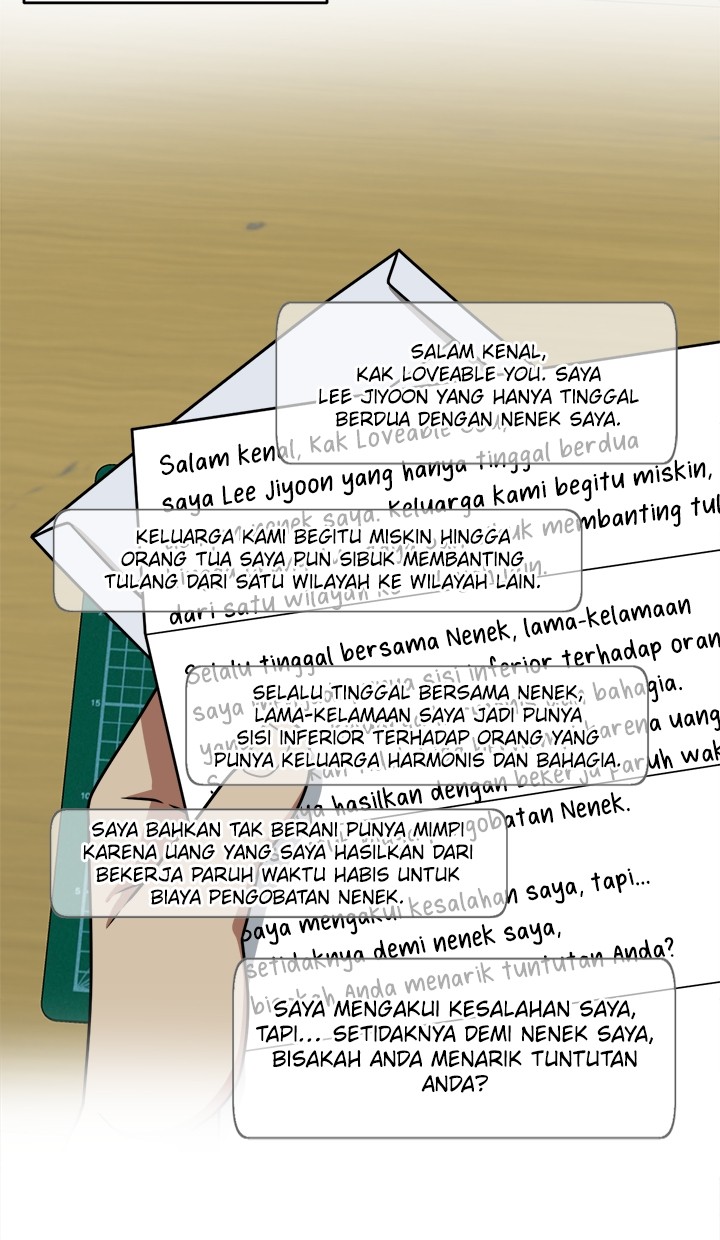 SALAM KENAL,
KAK LOVEABLE YOU. SAYA
LEE JIYOON YANG HANYA TINGGAL
BERDUA DENGAN NENEK SAYA.
Salam kenal, Kak Loveable You,
saya Lee Jiyoon yang hanya tinggal berdua
nenek saya. Keluarga kami begitu miskin,
membanting tul
KELUARGA KAMI BEGITU MISKIN HINGGA
ORANG TUA SAYA PUN SIBUK MEMBANTING
TULANG DARI SATU WILAYAH KE WILAYAH LAIN.
dari satu wilayah
Selalu tinggal bersama Nenek, lama-kelamaan
saya sisi inferior terhadap oran
bahagia.
karena uang
SELALU TINGGAL BERSAMA NENEK,
LAMA-KELAMAAN SAYA JADI PUNYA
SISI INFERIOR TERHADAP ORANG YANG
PUNYA KELUARGA HARMONIS DAN BAHAGIA.
hasilkan dengan bekerja paruh wak
pengobatan Nenek.
SAYA BAHKAN TAK BERANI PUNYA MIMPI
KARENA UANG YANG SAYA HASILKAN DARI
BEKERJA PARUH WAKTU HABIS UNTUK
BIAYA PENGOBATAN NENEK.
Saya mengakui kesalahan saya, tapi...
setidaknya demi nenek saya,
bisakah Anda menarik tuntutan Anda?
SAYA MENGAKUI KESALAHAN SAYA,
TAPI... SETIDAKNYA DEMI NENEK SAYA,
BISAKAH ANDA MENARIK TUNTUTAN
ANDA?
15
10
5